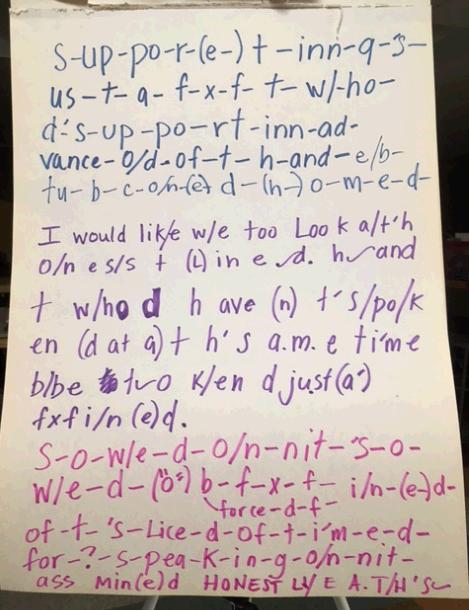 s-up-po-r-(e-) t-inn-g-s-
us-t-a-f-x-f-t-w/-ho-
d-'s-up-po-rt-inn-ad-
vance-o/d-of-t-h-and-e/b-
tu-b-c-o/n-(e) d-(h-) o-m-e-d-
I would lik/e w/e too Look a/t'h
o/n e s/s t (L) in e d. h and
t w/ho d h ave (n) t's/po/k
en (d at a) t h's a.m. e time
b/be two k/en d just (a')
fxf i/n (e) d.
s-o-w/e-d-o/n-nit-'s-o-
w/e-d-(ö's) b-f-x-f- i/n-(e-)d-
force-d-f-
of-t-'s-Lice-d-of-t-i'm-e-d-
for-?-s-pea-k-in-g-o/n-nit-
ass min(e)d HONEST LY/E A.T/H'S